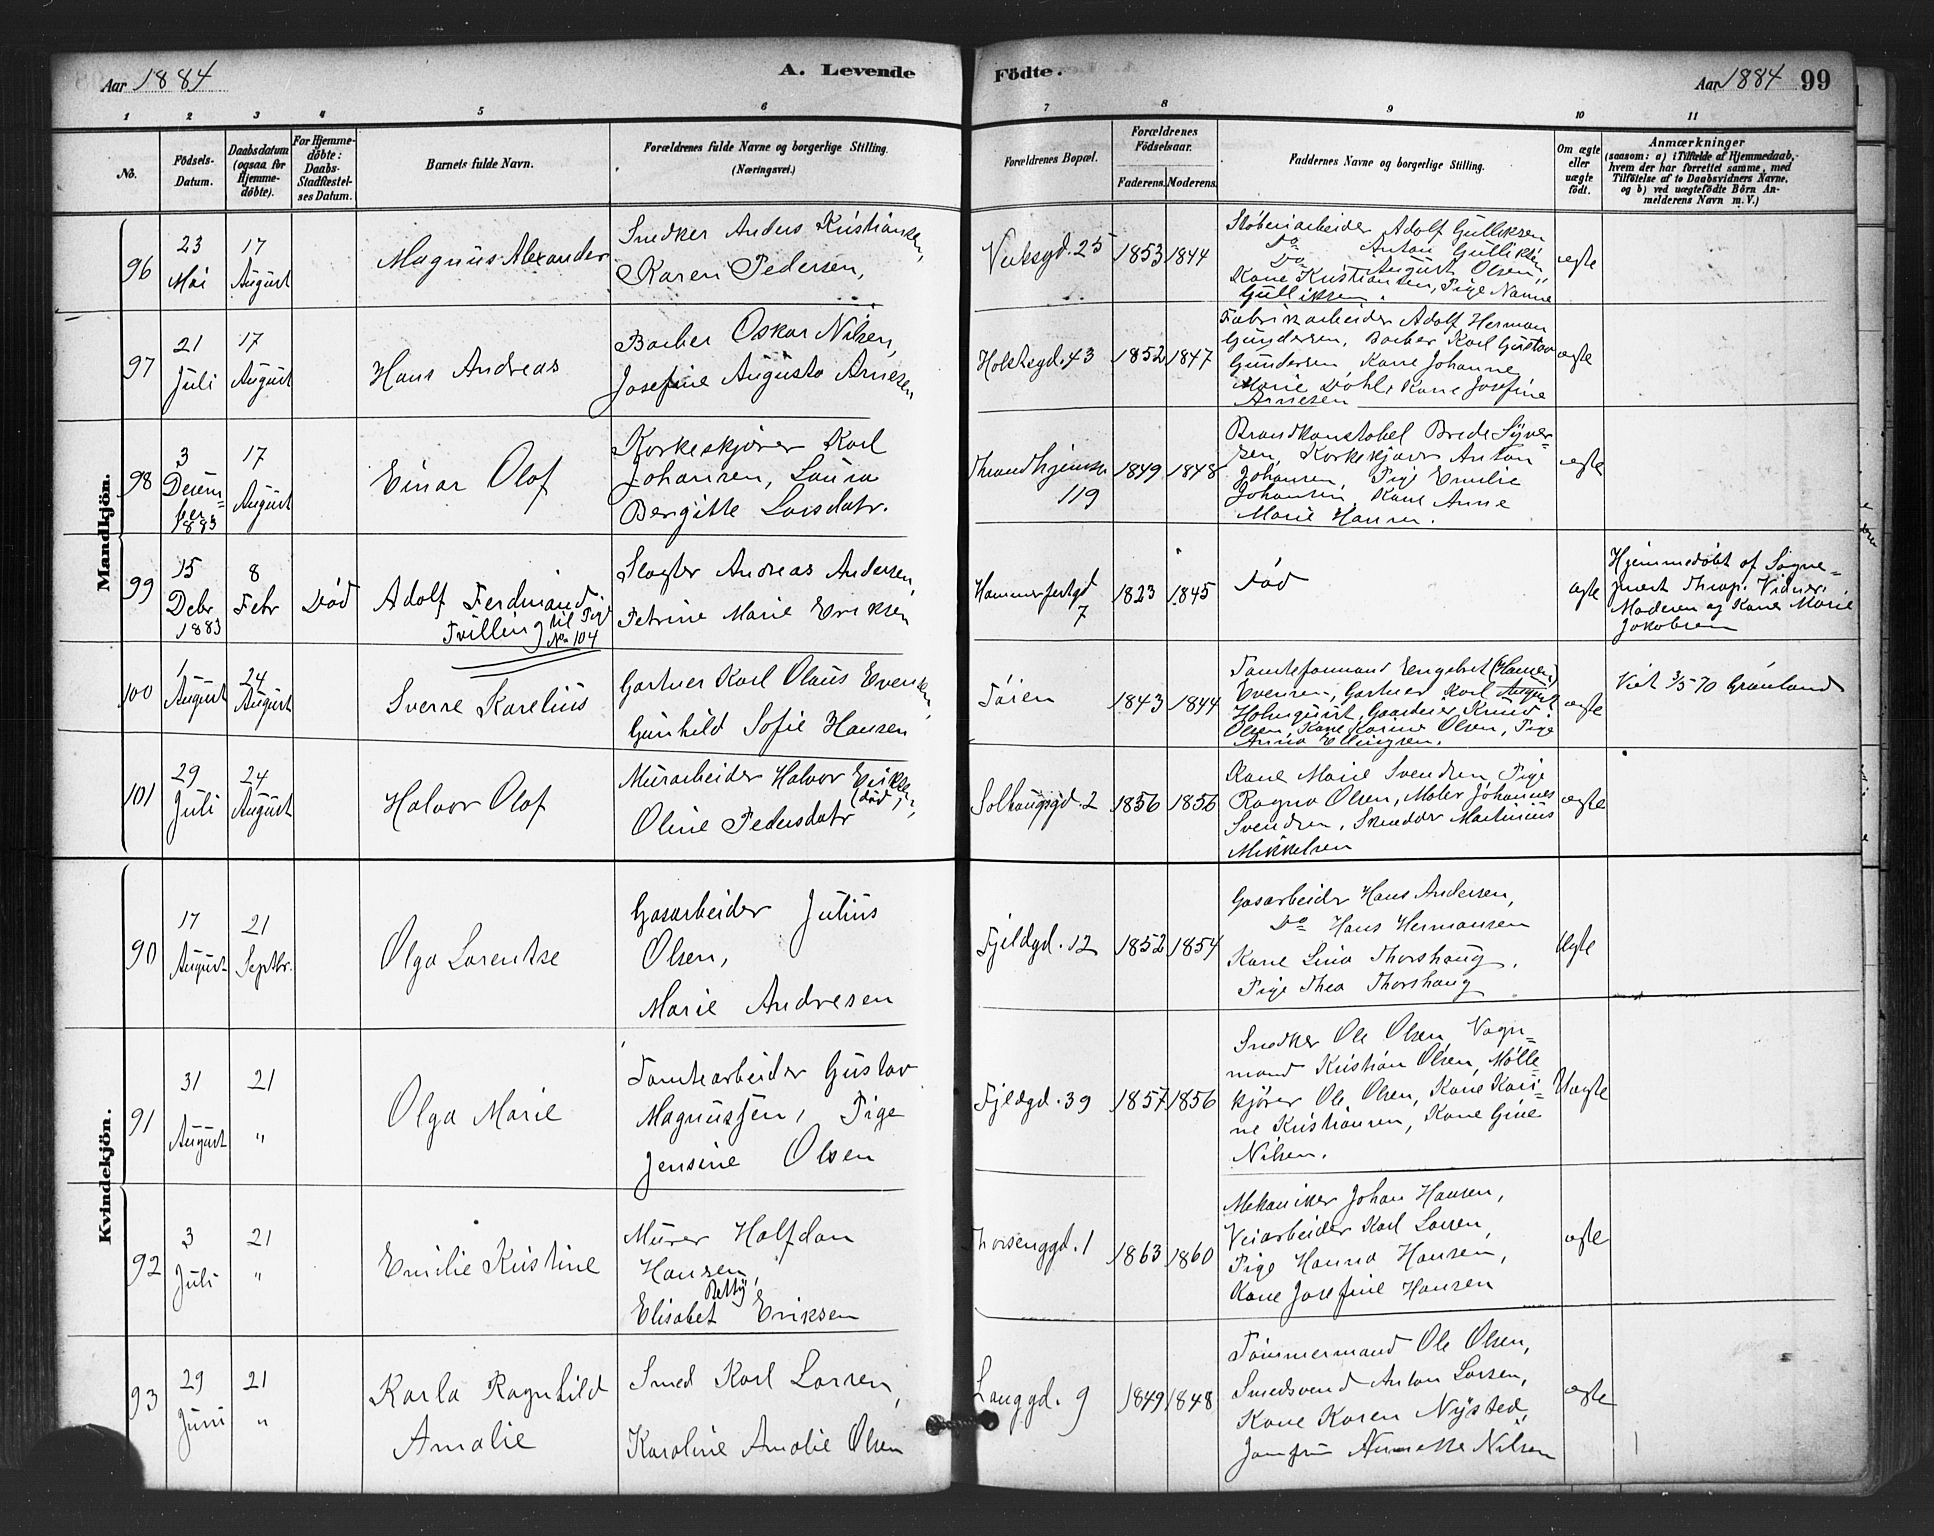 Aar 1884
A. Levende
Födte.
Aar 1884 99
1 2 3 4 5 6 7 8 9 10 11
No.
Födsels-
Datum.
Daabsdatum
(ogsaa for
Hjemme-
döbte).
For Hjemme-
döbte:
Daabs-
Stadfæstel-
ses Datum.
Barnets fulde Navn.
Forældrenes fulde Navne og borgerlige Stilling.
(Næringsvei.)
Forældrenes Bopæl.
Forældrenes
Födselsaar.
Faderens. Moderens.
Faddernes Navne og borgerlige Stilling.
Om ægte
eller
uægte
födt.
Anmærkninger
(saasom: a) i Tilfælde af Hjemmedaab,
hvem der har forrettet samme, med
Tilföielse af to Daabsvidners Navne,
og b) ved uægtefödte Börn An-
melderens Navn m. V.)
Mandkjön.
96
23
Mai
17
August
Magnus Alexander
Snedker Anders Kristiansen,
Karen Pedersen,
25
1853 1844
Støberiarbeider Adolf Gulliksen
Do Anton Gulliksen,
Do August Olsen,
Kone Kristiansen, Pige Nanna
Gulliksen.
ægte
97
21
Juli
17
August
Hans Andreas
Barber Oskar Nilsen,
Josefine Augusta Arnesen,
Holstsgd. 43
1852 1847
Fabrikarbeider Adolf Herman
Gundersen, Barber Karl Gustav
Gundersen Kone Johanne
Marie Døhl, Kone Josefine
Arnesen
ægte
98
3
Decem-
ber
1883
17
August
Einar Olaf
Korkeskjærer Karl
Johansen, Laura
Bergitte Larsdatr.
Throndhjemsv.
119
1849 1848
Brandkonstabel Brede Syver-
sen, Korkeskjærer Anton
Johansen, Pige Emilie
Johansen, Kone Anne
Marie Hansen.
ægte
99
15
Debr
1883
8
Febr
Død
Adolf Ferdinand
Tvilling til Pige
No 104
Slagter Andreas Andersen,
Petrine Marie Eriksen
Hammerfestgd
7
1823 1845
Død
ægte
Hjemmedøbt af Sogne-
præst Thrap. Vidner:
Moderen og Kone Marie
Jakobsen
100
1
August
24
August
Sverre Karelius
Gartner Karl Olaus Evensen,
Gunhild Sofie Hansen
Tøien
1843 1844
Tomteformand Engebret (Hansen)
Evensen, Gartner Karl August
Holmquist, Gaardeier Knud
Olsen, Kone Karine Olsen, Pige
Anna Ellingsen.
ægte
Viet 3/5 70 Grønland
101
29
Juli
24
August
Halvor Olaf
Murarbeider Halvor Eriksen,
(død)
Oline Pedersdatr
Solhaugsgd. 2
1856 1856
Kone Marie Svendsen, Pige
Ragna Olsen, Maler Johannes
Svendsen, Skrædder Martinius
Mikkelsen
ægte
Kvindekjön.
90
17
August
21
Septbr.
Olga Lorentse
Gasarbeider Julius
Olsen,
Marie Andresen
Fjeldgd. 12
1852 1854
Gasarbeider Hans Andersen,
Do Hans Hermansen
Kone Lina Thorshaug,
Pige Thea Thorshaug
Ægte
91
31
August
21
"
Olga Marie
Tomtearbeider Gustav
Magnussen, Pige
Jensine Olsen
Fjeldgd. 39
1857 1856
Snedker Ole Olsen, Vogn-
mand Kristian Olsen, Mølle-
kjører Ole Olsen, Kone Kari-
ne Kristiansen, Kone Gine
Nilsen.
Uægte
92
3
Juli
21
"
Emilie Kristine
Murer Halfdan
Hansen,
Betty
Elisabet Eriksen
Thorsenggd. 1
1863 1860
Mekaniker Johan Hansen,
Veiarbeider Karl Larsen,
Pige Hanna Hansen,
Kone Josefine Hansen
ægte
93
29
Juni
21
"
Karla Ragnhild
Amalie
Smed Karl Larsen,
Karoline Amalie Olsen
Langgd. 9
1849 1848
Tømmermand Ole Olsen,
Smedsvend Anton Larsen,
Kone Karen Nysted,
Jomfru Annette Nilsen
ægte